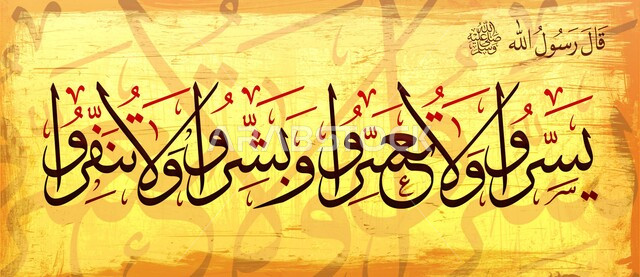 قَالَ رَسُولُ اللّٰه ﷺ
يَسِّرُوا وَلَا تُعَسِّرُوا وَبَشِّرُوا وَلَا تُنَفِّرُوا
ARABSTOCK